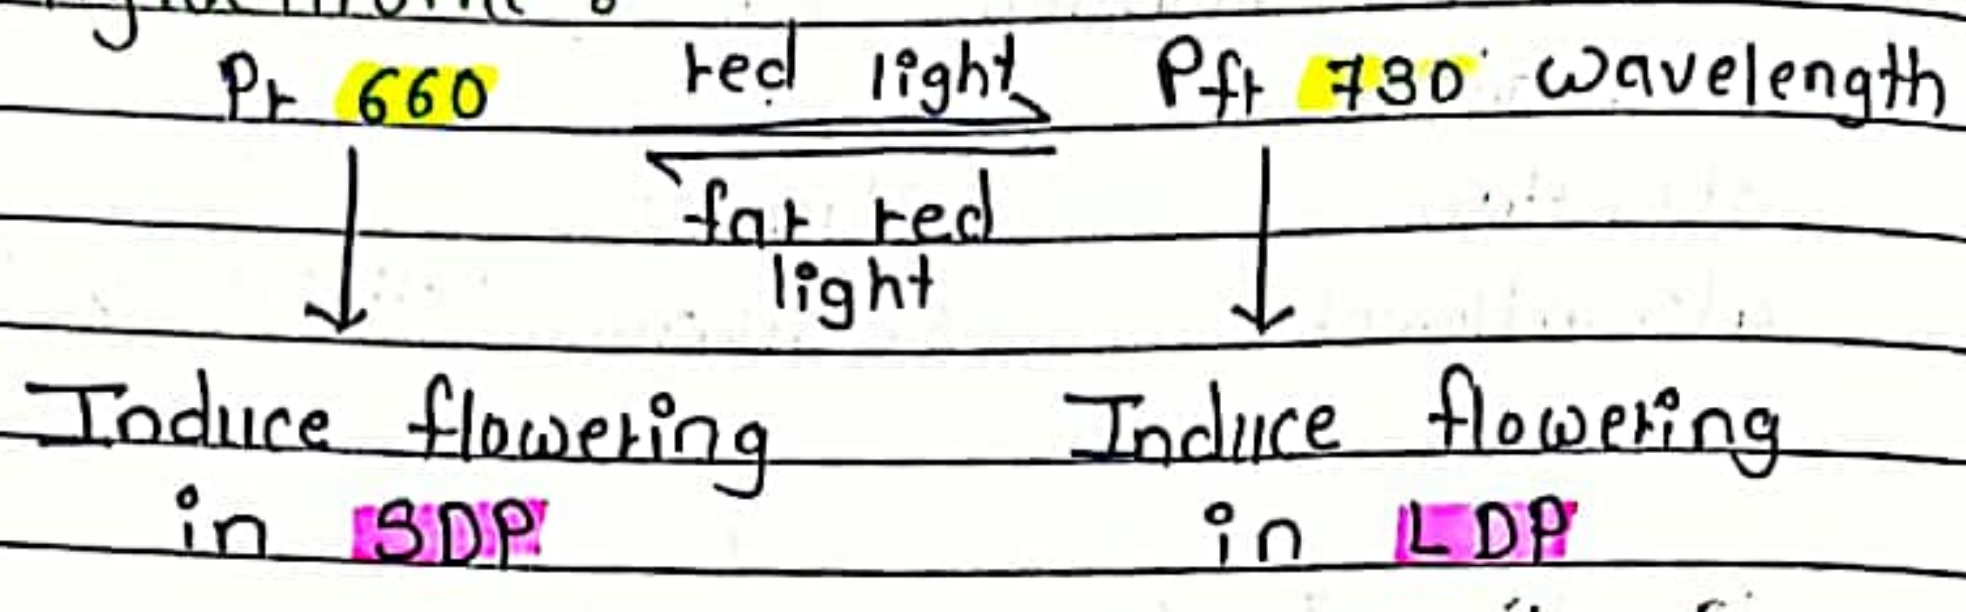 Pr 660 red light Pfr 730 wavelength
far red
light
Induce flowering Induce flowering
in SDP in LDP